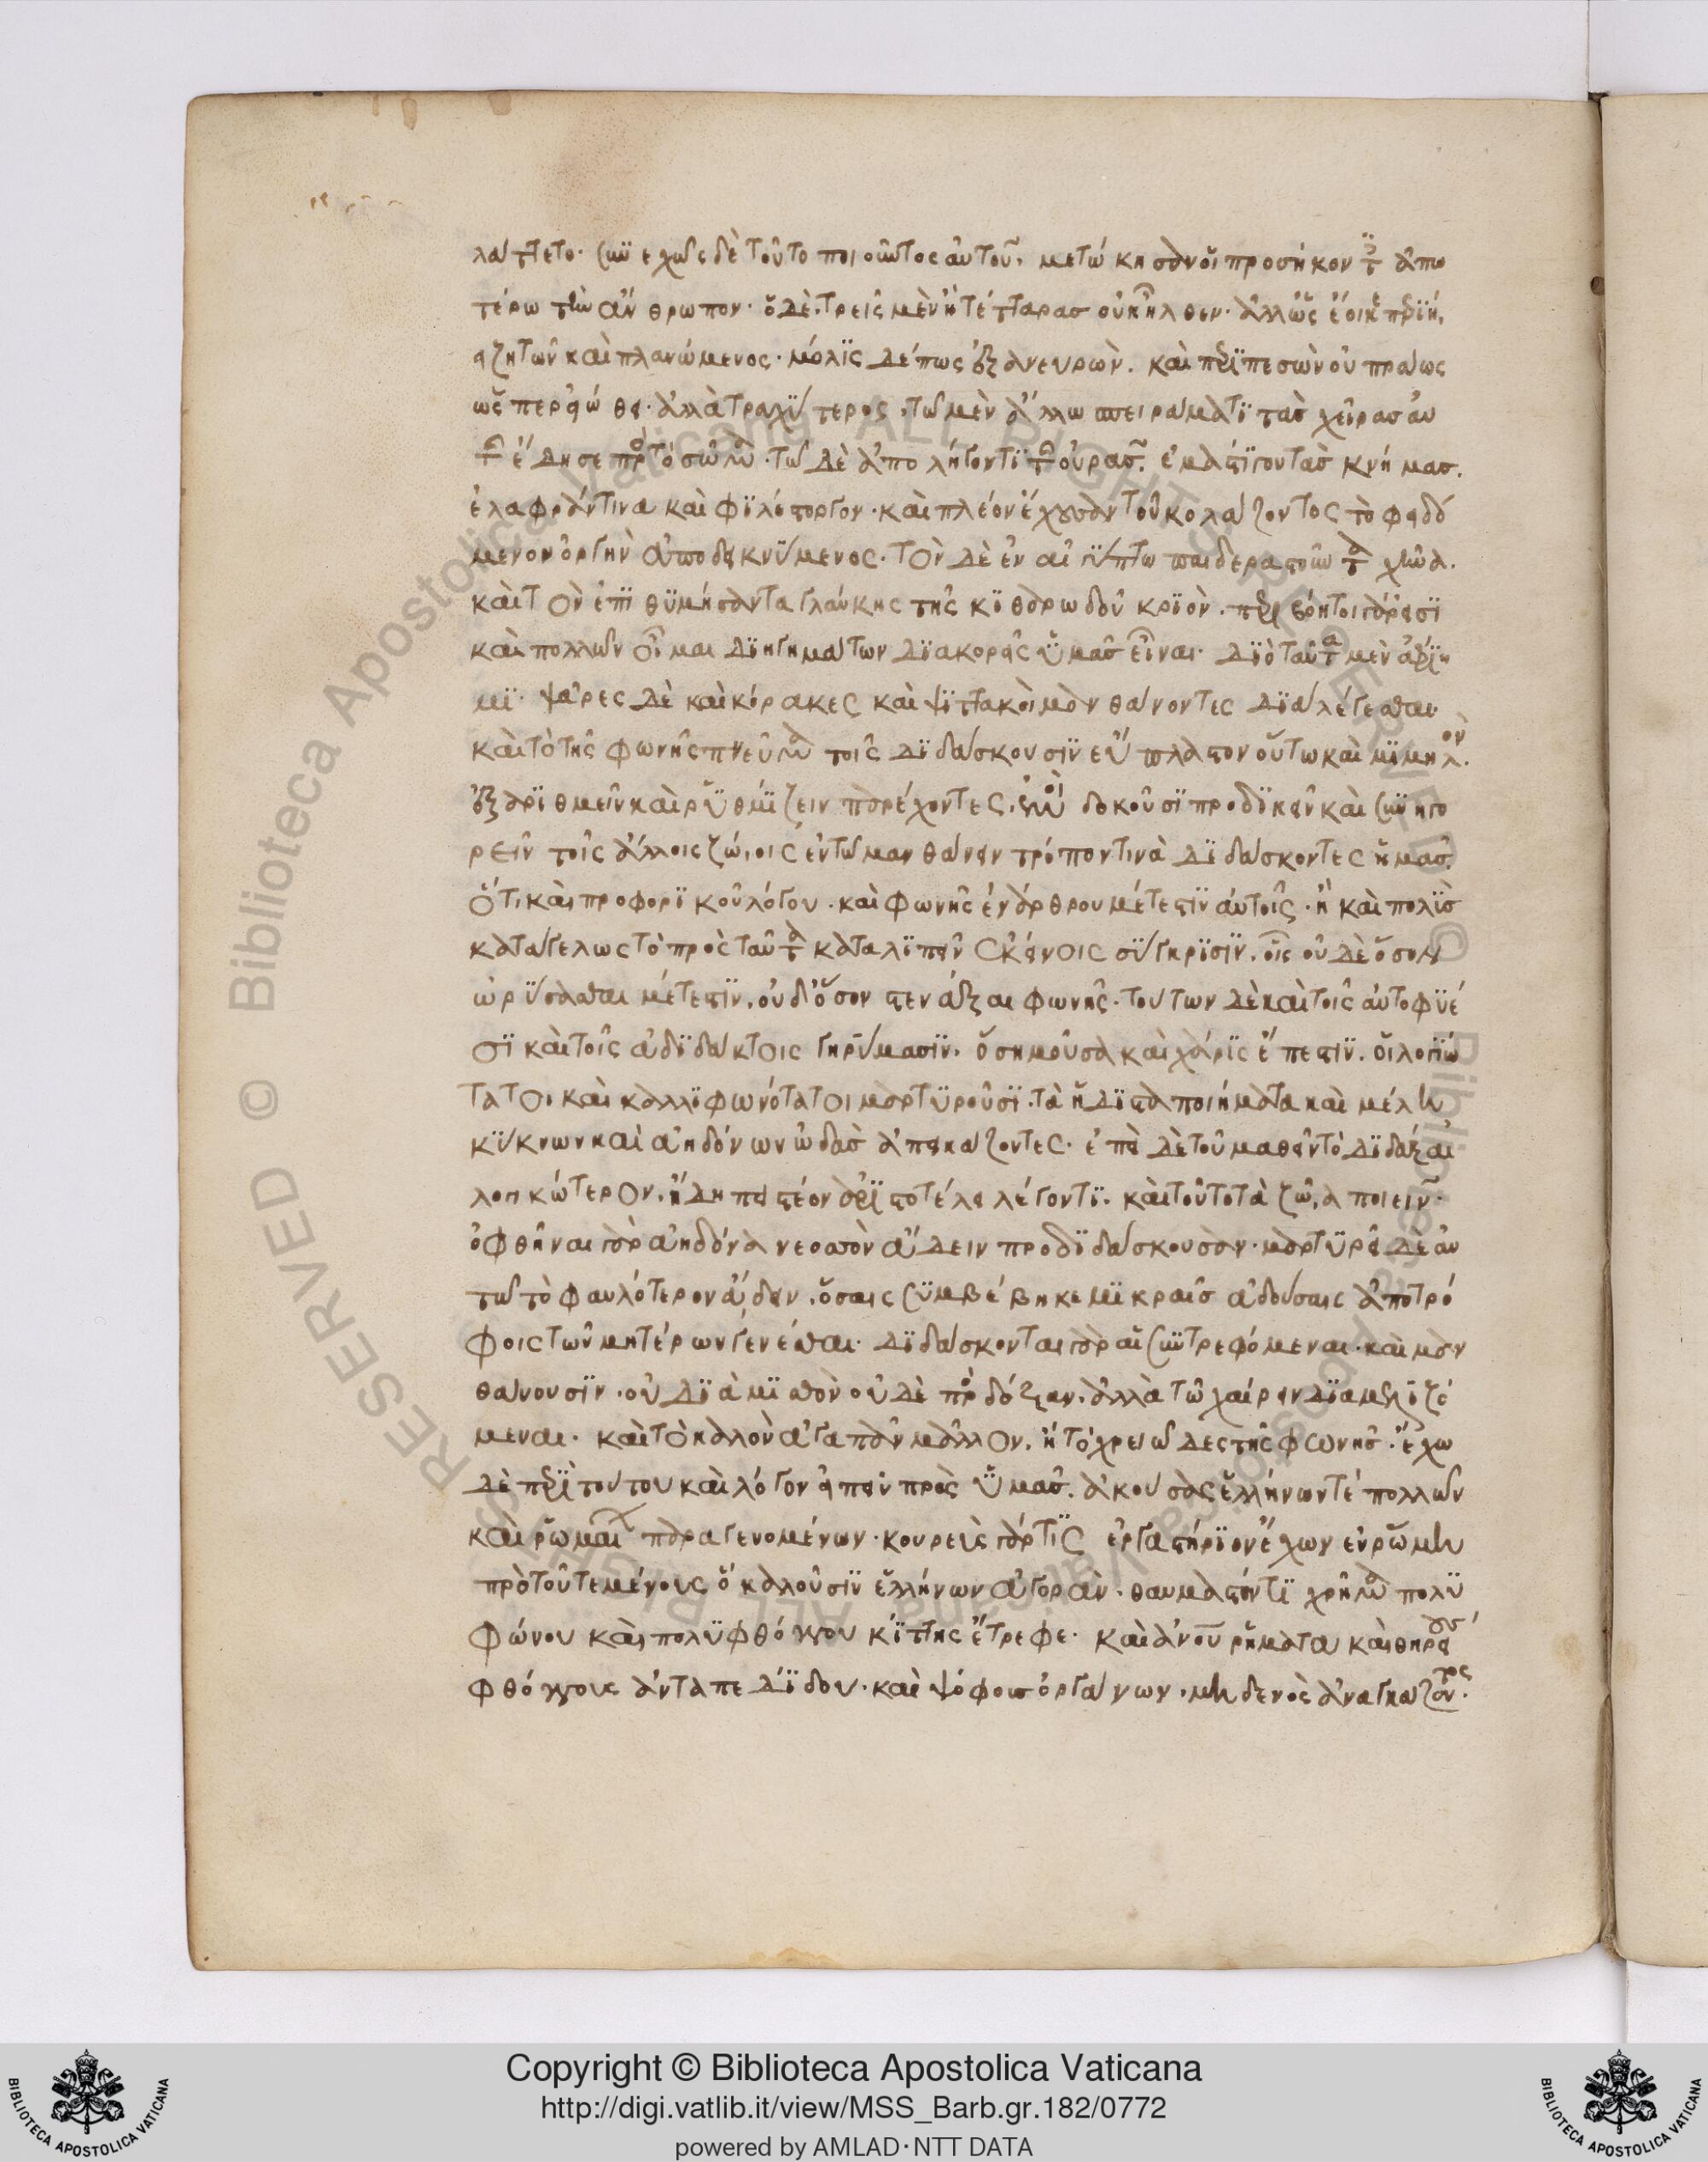 λάττετο· συνεχῶς δὲ τοῦτο ποιοῦντος αὐτοῦ, μετώκησαν οἱ προσήκοντες ἀπω
τέρω τὸν ἄνθρωπον· ὁ δὲ τρεῖς μὲν ἢ τέτταρας οὐκ ἦλθεν· ἀλλ' ὡς ἔοικε περιῄει
ζητῶν καὶ πλανώμενος· μόλις δέ πως ἐξανευρὼν, καὶ περιπεσὼν οὐ πράως
ὥσπερ εἰώθει· ἀλλὰ τραχύτερος, τῷ μὲν ἄλλῳ σπειράματι τὰς χεῖρας αὐ
τοῦ ἔδησε πρὸς τὸ σῶμα· τῷ δὲ ἀπολήγοντι τῆς οὐρᾶς ἐμάστιγου τὰς κνήμας.
ἐλαφράν τινα καὶ φιλόστοργον· καὶ πλέον ἔχουσαν τοῦ κολάζοντος τὸ φειδό
μενον ὀργὴν ἀποδεικνύμενος· τὸν δὲ ἐν αἰγύπτῳ παιδεραστοῦντα χῆνα,
καὶ τὸν ἐπιθυμήσαντα γλαύκης τῆς κιθαρῳδοῦ κριὸν, περιβόητοι γάρ εἰσι
καὶ πολλῶν οἶμαι διηγημάτων διακορεῖς ὑμᾶς εἶναι· διὸ ταῦτα μὲν ἀφίη
μι· ψᾶρες δὲ καὶ κόρακες καὶ ψιττακοὶ μανθάνοντες διαλέγεσθαι·
καὶ τὸ τῆς φωνῆς πνεῦμα τοῖς διδάσκουσιν εὔπλαστον οὕτω καὶ μιμηλὸν
ἐξαριθμεῖν καὶ ῥυθμίζειν παρέχοντες, ἐμοὶ δοκοῦσι προδικεῖν καὶ συνηγο
ρεῖν τοῖς ἄλλοις ζώοις ἐν τῷ μανθάνειν τρόπον τινὰ διδάσκοντες ἡμᾶς
ὅτι καὶ προφορικοῦ λόγου· καὶ φωνῆς ἐνάρθρου μέτεστιν αὐτοῖς· ᾗ καὶ πολὺς
κατάγελως τὸ πρὸς ταῦτα καταλιπεῖν ἐκείνοις σύγκρισιν, οἷς οὐδὲ ὅσον
ὠρύσασθαι μέτεστιν, οὐδ' ὅσον στενάξαι φωνῆς· τούτων δὲ καὶ τοῖς αὐτοφυέ
σι καὶ τοῖς ἀδιδάκτοις γηρύμασιν, ὅση μοῦσα καὶ χάρις ἔπεστιν, οἱ λογιώ
τατοι καὶ καλλιφωνότατοι μαρτυροῦσι· τὰ ἥδιστα ποιήματα καὶ μέλη
κύκνων καὶ ἀηδόνων ᾠδαῖς ἀπεικάζοντες· ἐπεὶ δὲ τοῦ μαθεῖν τὸ διδάξαι
λογικώτερον, ἤδη πειστέον ἀριστοτέλει λέγοντι· καὶ τοῦτο τὰ ζῶα ποιεῖν·
ὀφθῆναι γὰρ ἀηδόνα νεοσσὸν ᾄδειν προδιδάσκουσαν· μαρτυρεῖ δὲ αὐ
τῷ τὸ φαυλότερον ᾄδειν, ὅσαις συμβέβηκε μικραῖς ἁλούσαις ἀποτρό
φοις τῶν μητέρων γενέσθαι· διδάσκονται γὰρ αἱ συντρεφόμεναι· καὶ μαν
θάνουσιν· οὐ διὰ μισθὸν οὐδὲ πρὸς δόξαν, ἀλλὰ τῷ χαίρειν διαμελιζό
μεναι· καὶ τὸ καλὸν ἀγαπᾶν μᾶλλον, ἢ τὸ χρειῶδες τῆς φωνῆς· ἔχω
δὲ περὶ τούτου καὶ λόγον εἰπεῖν πρὸς ὑμᾶς, ἀκούσας ἑλλήνων τε πολλῶν
καὶ ῥωμαίων παραγενομένων· κουρεὺς γάρ τις ἐργαστήριον ἔχων ἐν ῥώμῃ
πρὸ τοῦ τεμένους ὃ καλοῦσιν ἑλλήνων ἀγορὰν· θαυμαστόν τι χρῆμα πολυ
φώνου καὶ πολυφθόγγου κίττης ἔτρεφε· καὶ ἀνθρώπου ῥήματα καὶ θηρείους
φθόγγους ἀνταπεδίδου· καὶ ψόφους ὀργάνων, μηδενὸς ἀναγκάζοντος.
Copyright © Biblioteca Apostolica Vaticana
http://digi.vatlib.it/view/MSS_Barb.gr.182/0772
powered by AMLAD·NTT DATA